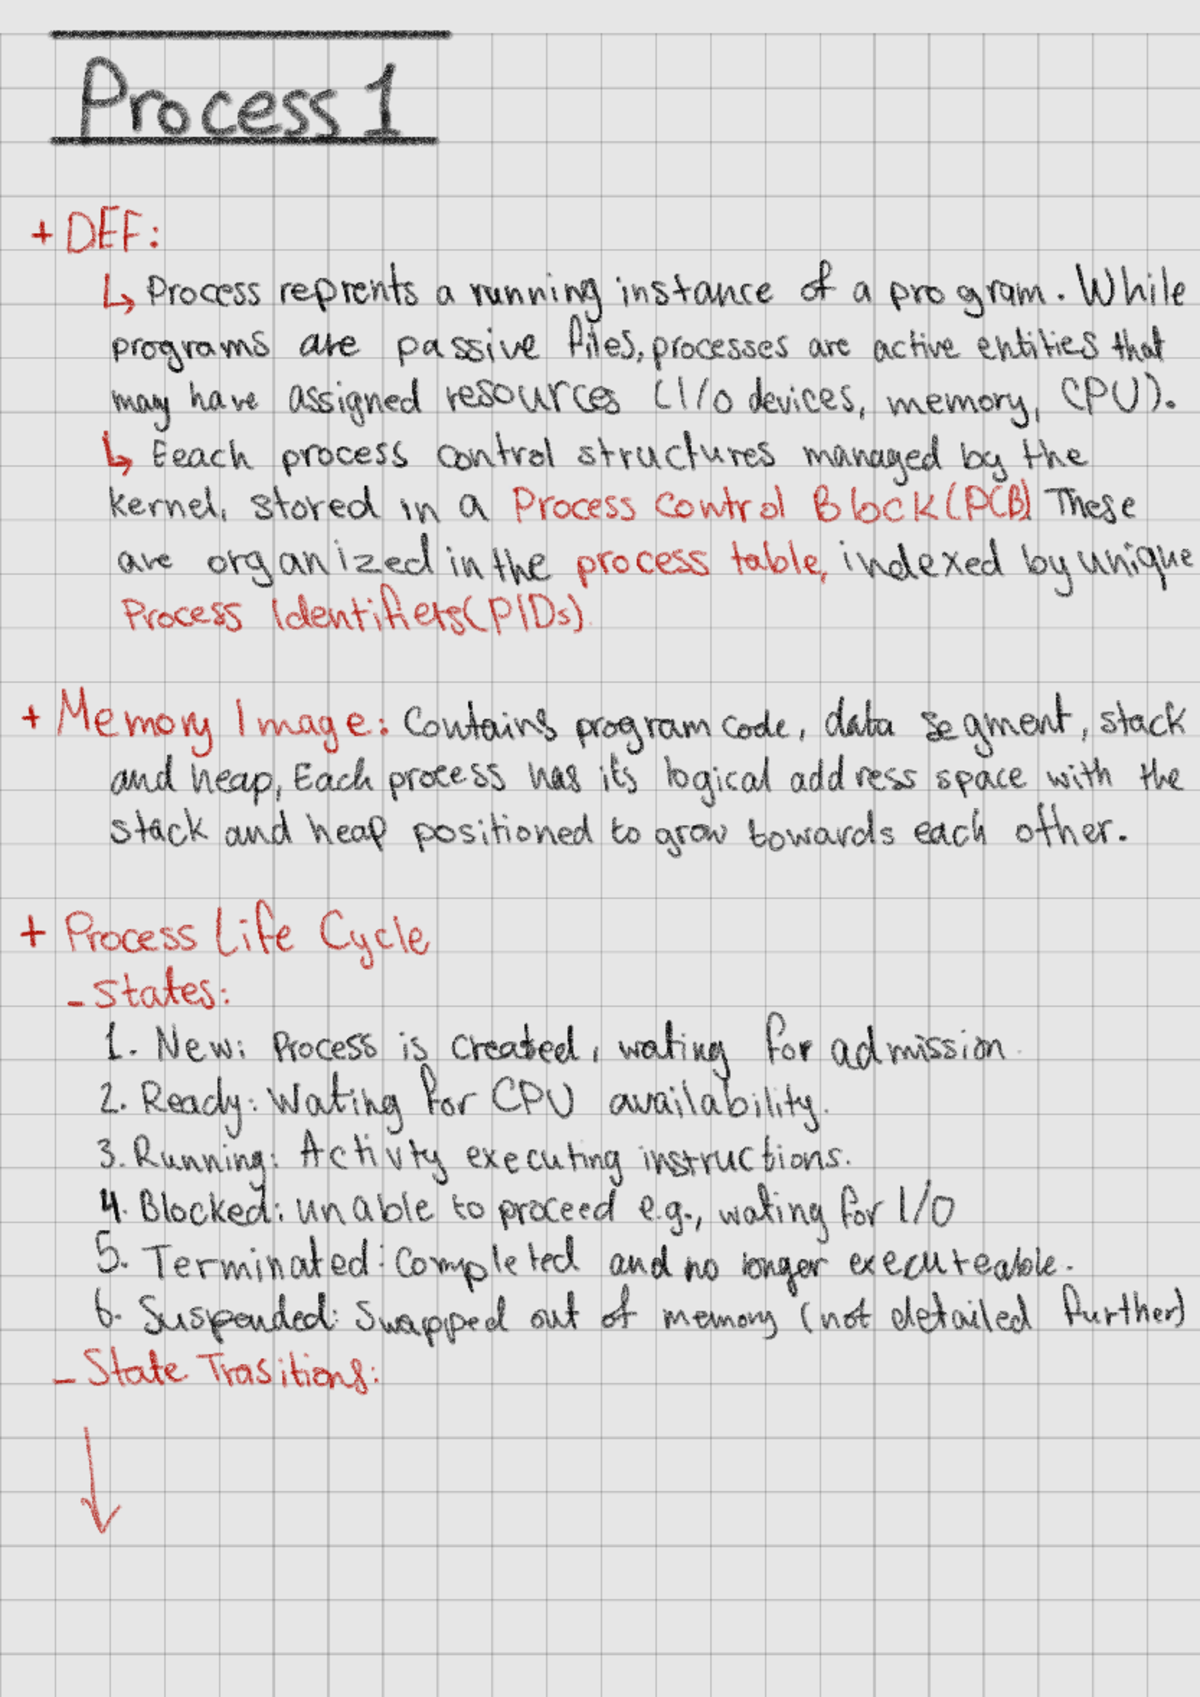 Process 1
+ DEF:
↳ Process reprents a running instance of a program. While
programs are passive files, processes are active entities that
may have assigned resources (I/o devices, memory, CPU).
↳ Eeach process control structures managed by the
kernel, stored in a Process Control Block (PCB) These
are organized in the process table, indexed by unique
Process Identifiers (PIDs).
+ Memory Image: Contains program code, data segment, stack
and heap, Each process has its logical address space with the
stack and heap positioned to grow towards each other.
+ Process Life Cycle
- States:
1. New: Process is created, wating for admission.
2. Ready: Wating for CPU availability.
3. Running: Activty executing instructions.
4. Blocked: unable to proceed e.g., wating for I/O
5. Terminated: Completed and no longer executeable.
6. Suspended: Swapped out of memory (not detailed further)
- State Trasitions:
↓